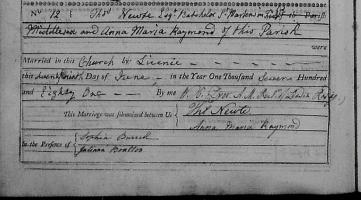 No. 12 Thos. Newte Esqr. Batchelor St. Martens in
Middlesex and Anna Maria Raymond of this Parish
were
Married in this Church by Licence
this Day of June in the Year One Thousand Seven Hundred
and Eighty One By me
This Marriage was solemnized between Us Thos. Newte
Anna Maria Raymond
In the Presence of Sophia Burrel
Juliana Boulton